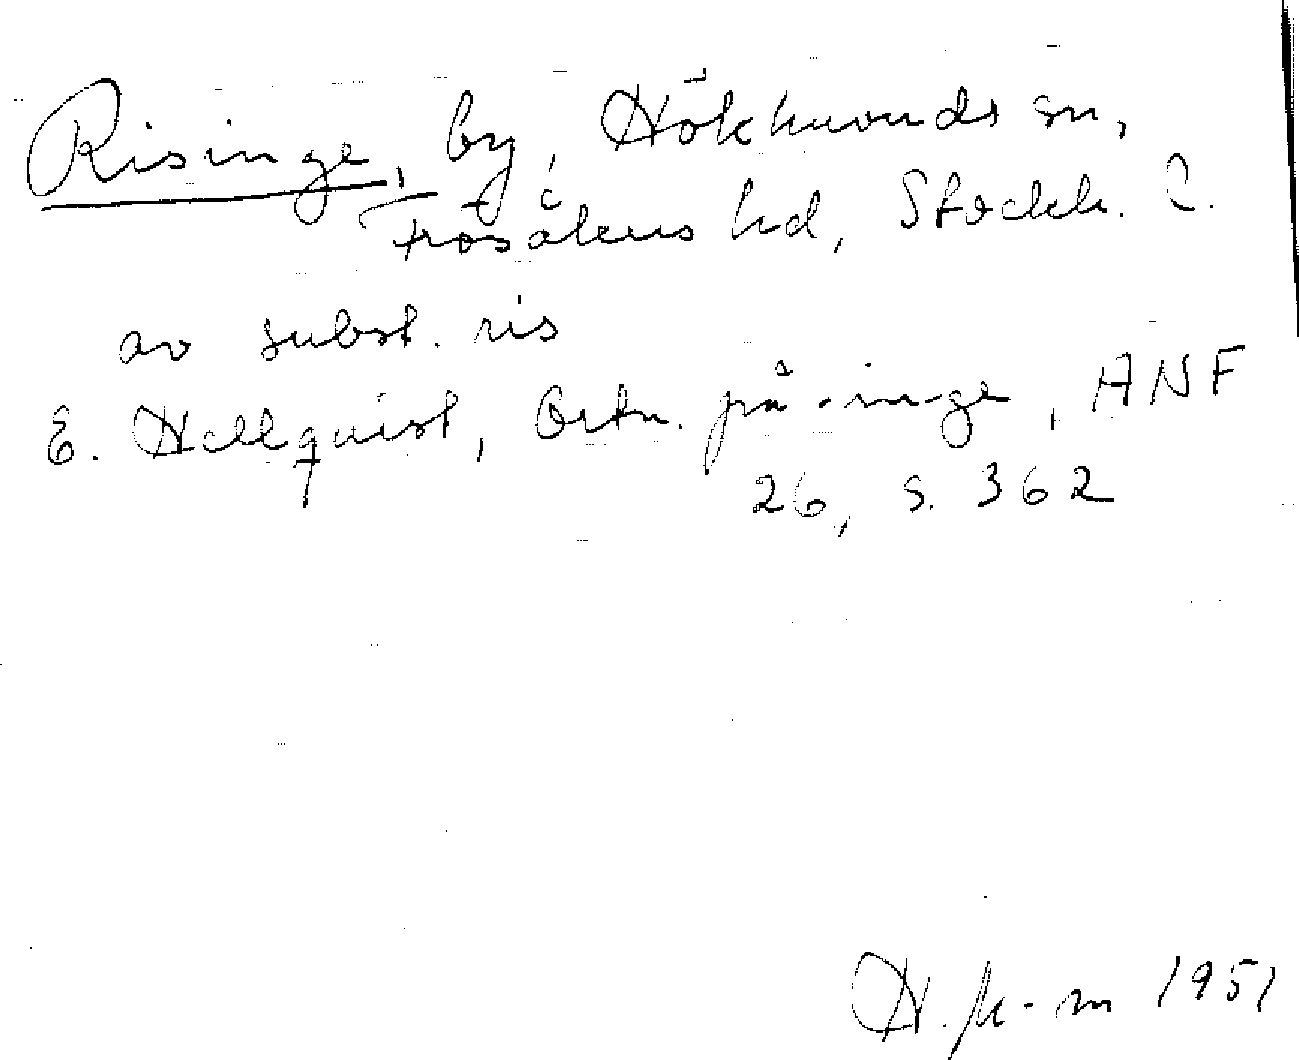 Risinge, by, Hökhuvuds sn,
Frösåkers hd, Stockh. l.
av subst. ris
E. Hellquist, Ortn. på -inge, ANF
26, s. 362
H. K-m 1951